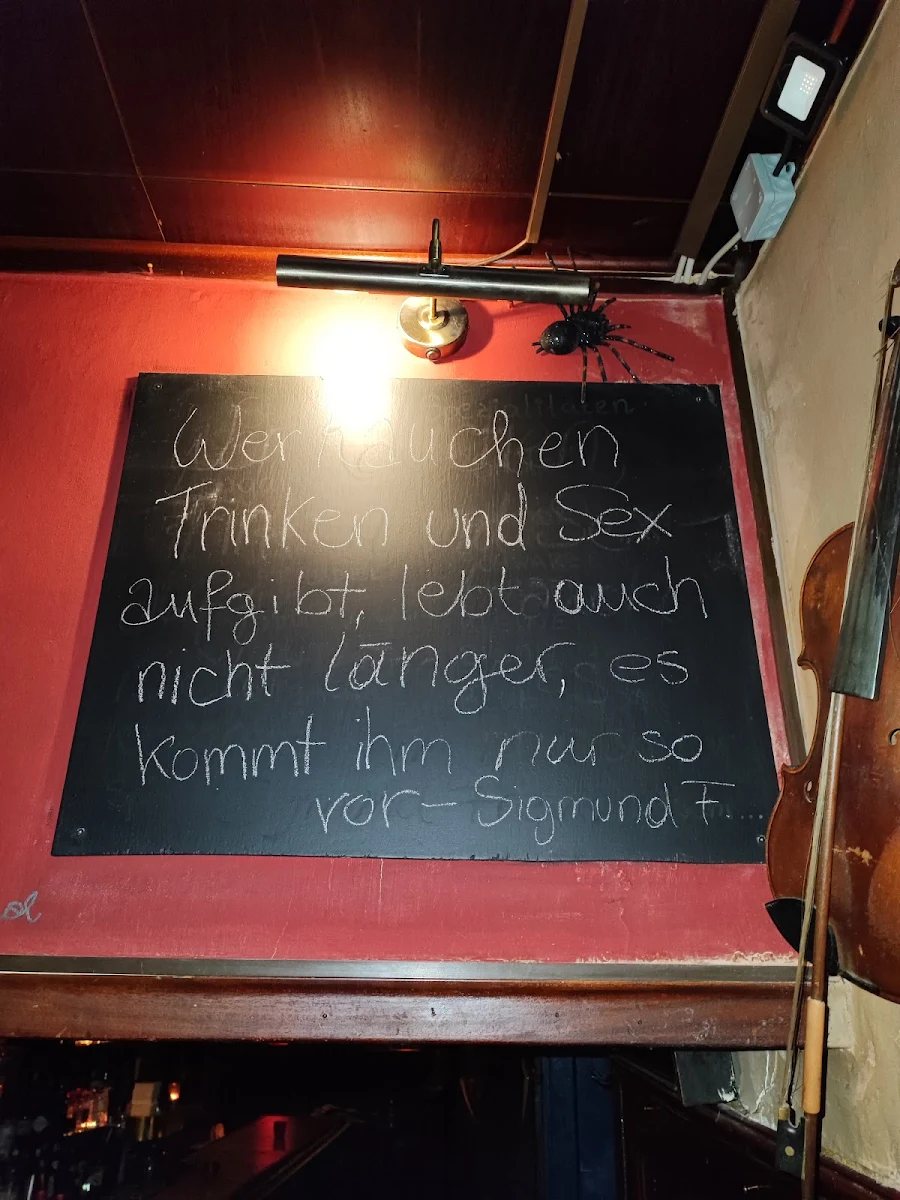 Spezialitäten
Wer Rauchen
Trinken und Sex
aufgibt, lebt auch
nicht länger, es
kommt ihm nur so
vor- Sigmund F....